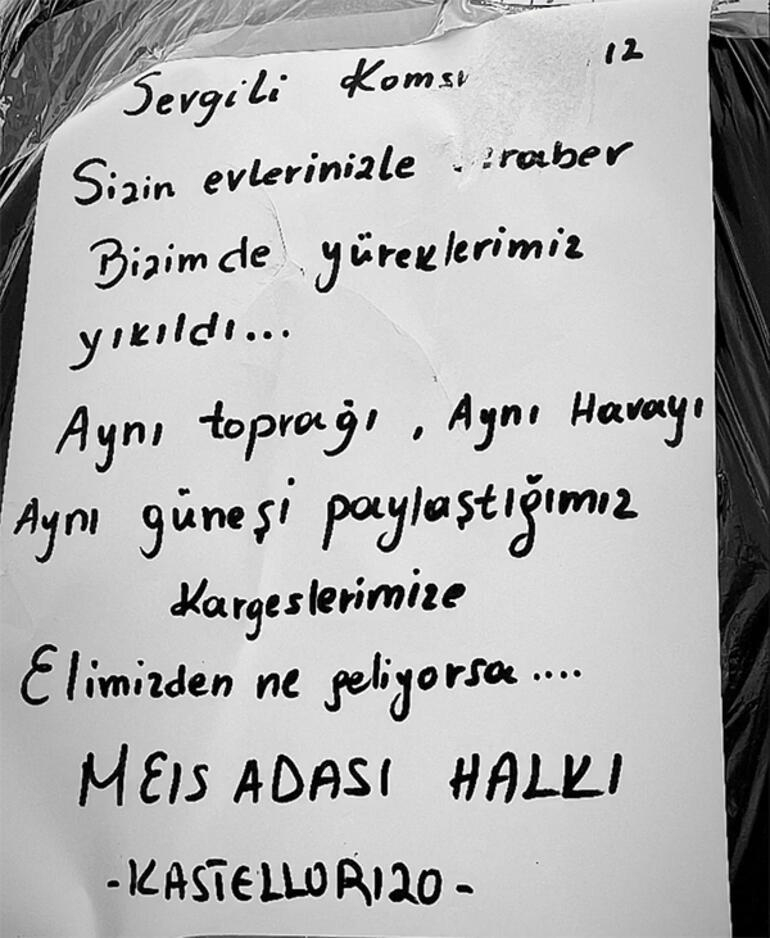 Sevgili Komsı 12
Sizin evlerinizle raber
Bizimde yüreklerimiz
yıkıldı...
Aynı toprağı, Aynı Havayı
Aynı güneşi paylaştığımız
Kargeslerimize
Elimizden ne geliyorsa....
MEIS ADASI HALKI
-KASTELLORIZO-